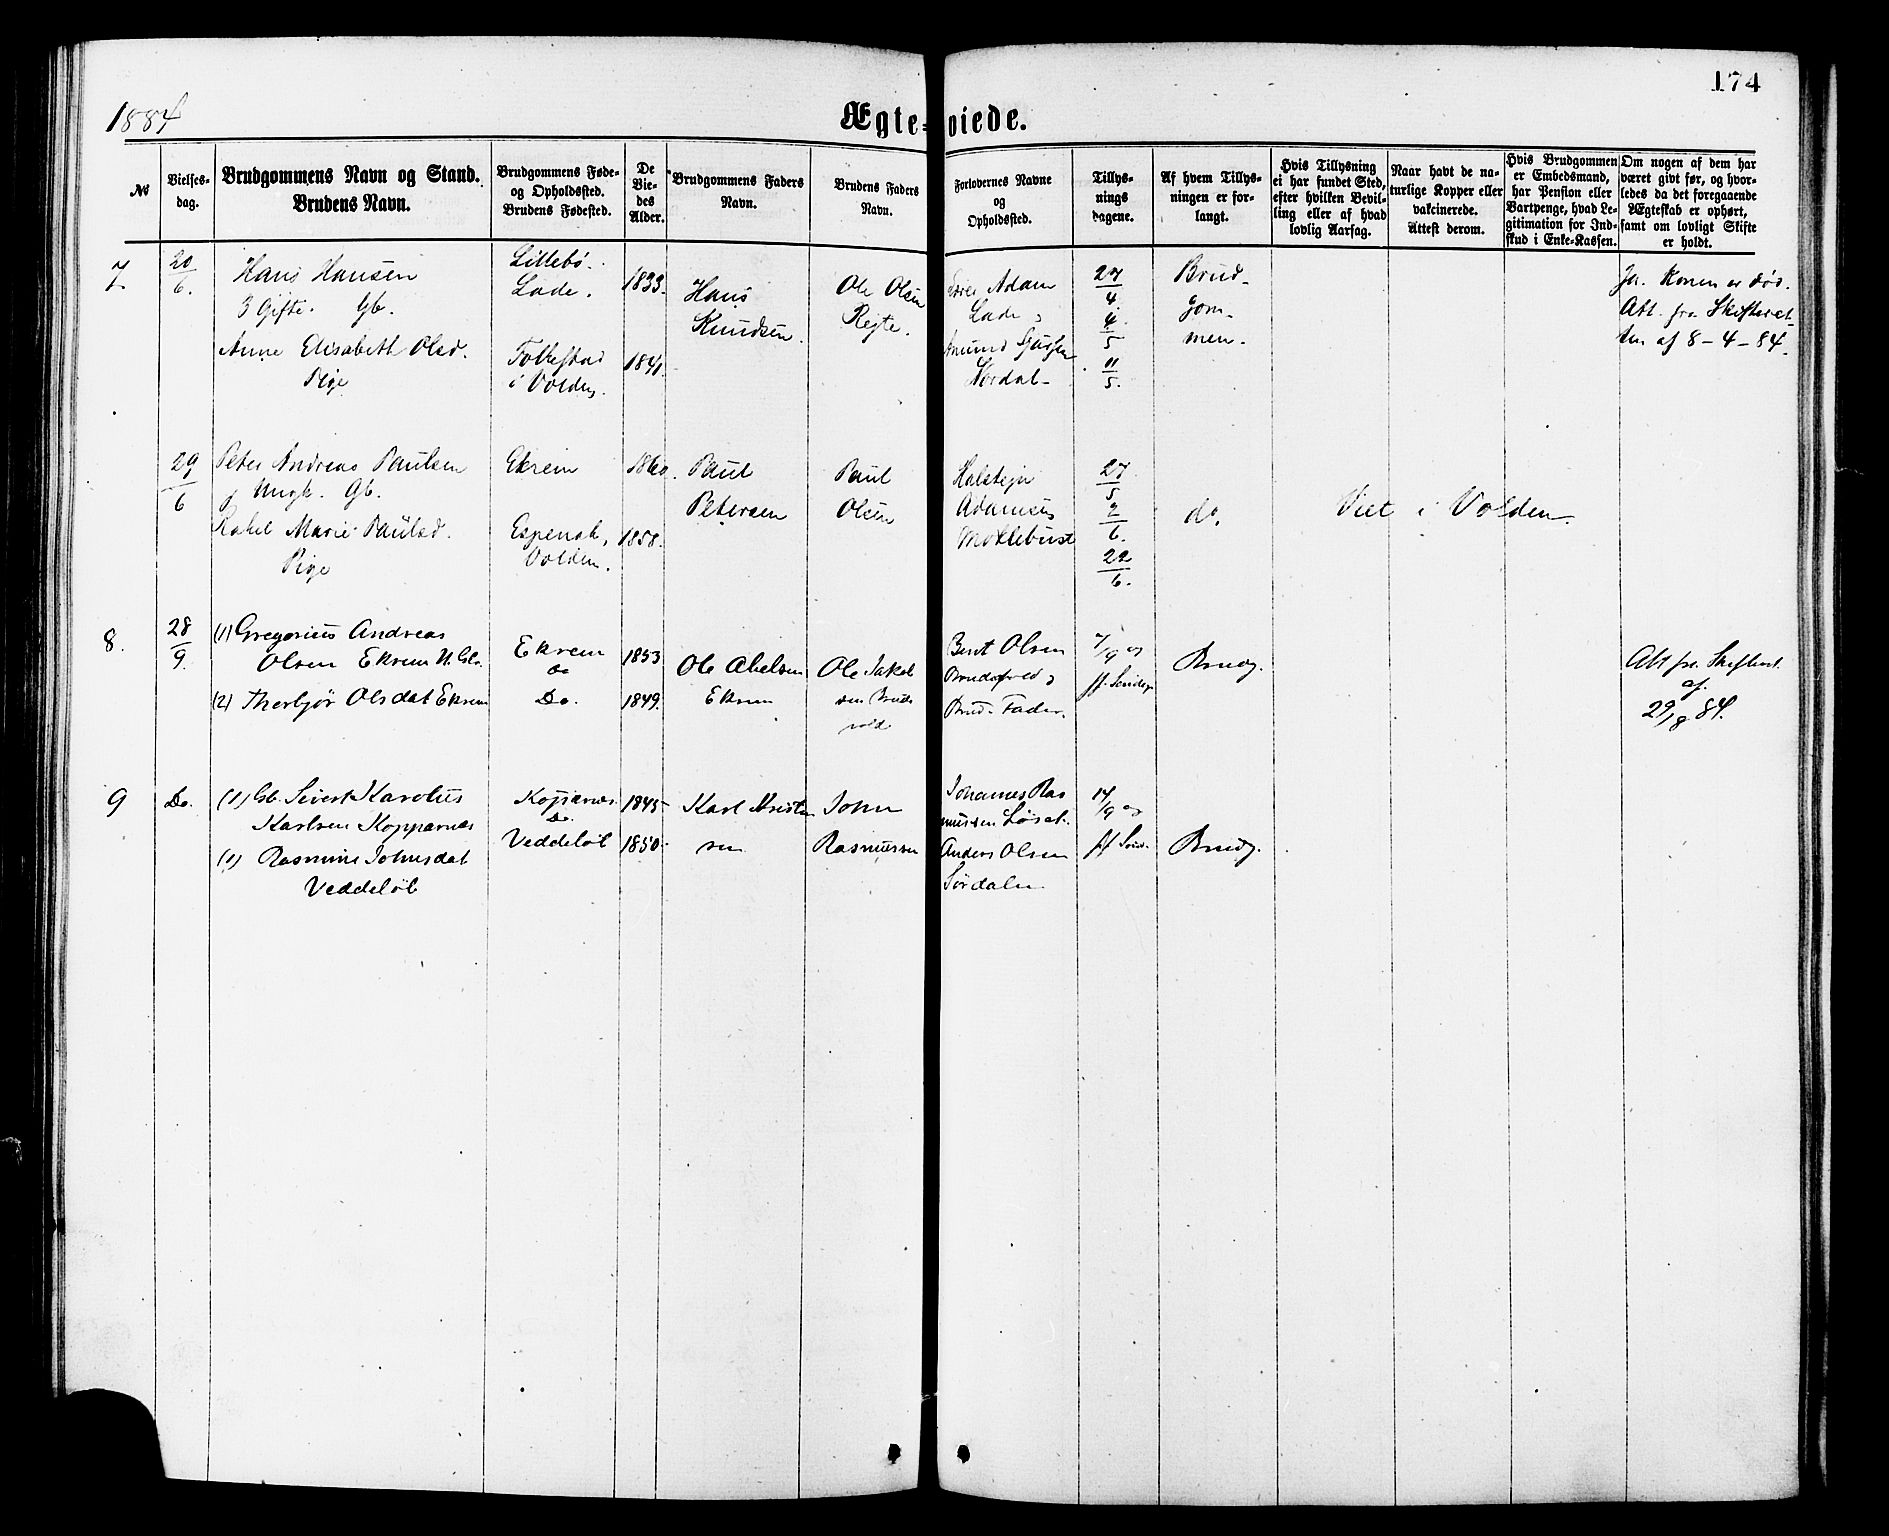 174
1884
Ægte=viede.
№
Vielses-
dag.
Brudgommens Navn og Stand.
Brudens Navn.
Brudgommens Føde-
og Opholdssted.
Brudens Fødested.
De
Vie-
des
Alder.
Brudgommens Faders
Navn.
Brudens Faders
Navn.
Forlovernes Navne
og
Opholdssted.
Tillys-
nings
dagene.
Af hvem Tillys-
ningen er for-
langt.
Hvis Tillysning
ei har fundet Sted,
efter hvilken Bevil-
ling eller af hvad
lovlig Aarsag.
Naar havt de na-
turlige Kopper eller
vakcinerede.
Attest derom.
Hvis Brudgommen
er Embedsmand,
har Pension eller
Vartpenge, hvad Le-
gitimation for Ind-
skud i Enke-Kassen.
Om nogen af dem har
været givt før, og hvor-
ledes da det foregaaende
Ægteskab er ophørt,
samt om lovligt Skifte
er holdt.
7
20
6.
Hans Hansen
3 Gifte. Gb.
Anne Elisabeth Olsd.
Pige
Lillebø
Lade.
Folkestad
i Volden.
1833.
1841.
Hans
Knudsen.
Ole Olsen
Adam
Lade
Nordal
27
4
4
5
11
5.
Brud-
gom-
men.
Ja. Konen er død.
Att. fra Skifteret-
ten af 8-4-84.
29
6
Peter Andreas Paulsen
Ungk. Gb.
Rakel Marie Paulsd.
Pige
Ekrem
Volden.
1860.
1858.
Paul
Petersen
Paul
Olsen
Halstejn
Adamsen
Mokleburst
27
5
2
6.
22
6.
do.
Viet i Volden.
8.
28
9.
(1) Gregorius Andreas
Olsen Ekrem
(2) Therbjør Olsdat Ekrem
Ekrem
Do.
1853
1849.
Ole Abelsen
Ekrem
Ole Jakob
sen
Bernt Olsen
Brud. Fader.
7/9 og
Brudg.
Att fra Skifteret
af
29/8 84.
9
Do.
(1) Gb. Sivert Karolus
Karlsen Kopparnæs
(1) Rasmine Johnsdat
Veddeløb
Kopparnæs
Do.
Veddeløb
1845
1850
Karl Kristen
sen
John
Rasmussen
Johannes Ras
mussen
Anders Olsen
Sørdalen
14/9 og
Brudg.